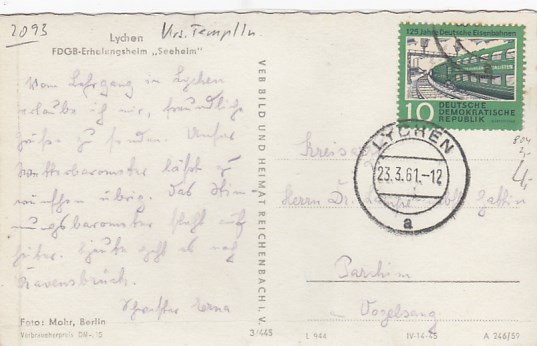 2093
Krs. Templin.
Lychen
FDGB-Erholungsheim „Seeheim"
Vom Lehrgang in Lychen
erlaube ich mir, freundliche
Grüße zu senden. Unser
Wetterbarometer läßt zu
wünschen übrig. Das Stim
mungsbarometer steht auf
heiter. Heute geht es nach
Ravensbrück.
Schwester Erna
Foto: Mohr, Berlin
Verbraucherpreis DM -,15
VEB BILD UND HEIMAT REICHENBACH i. V.
3/445
125 Jahre Deutsche Eisenbahnen
10 DEUTSCHE
DEMOKRATISCHE
REPUBLIK
LYCHEN
23.3.61.-12
a
Herrn Dr. Gattin
Parchim
Vogelsang
L 944
IV-14-45
A 246/59